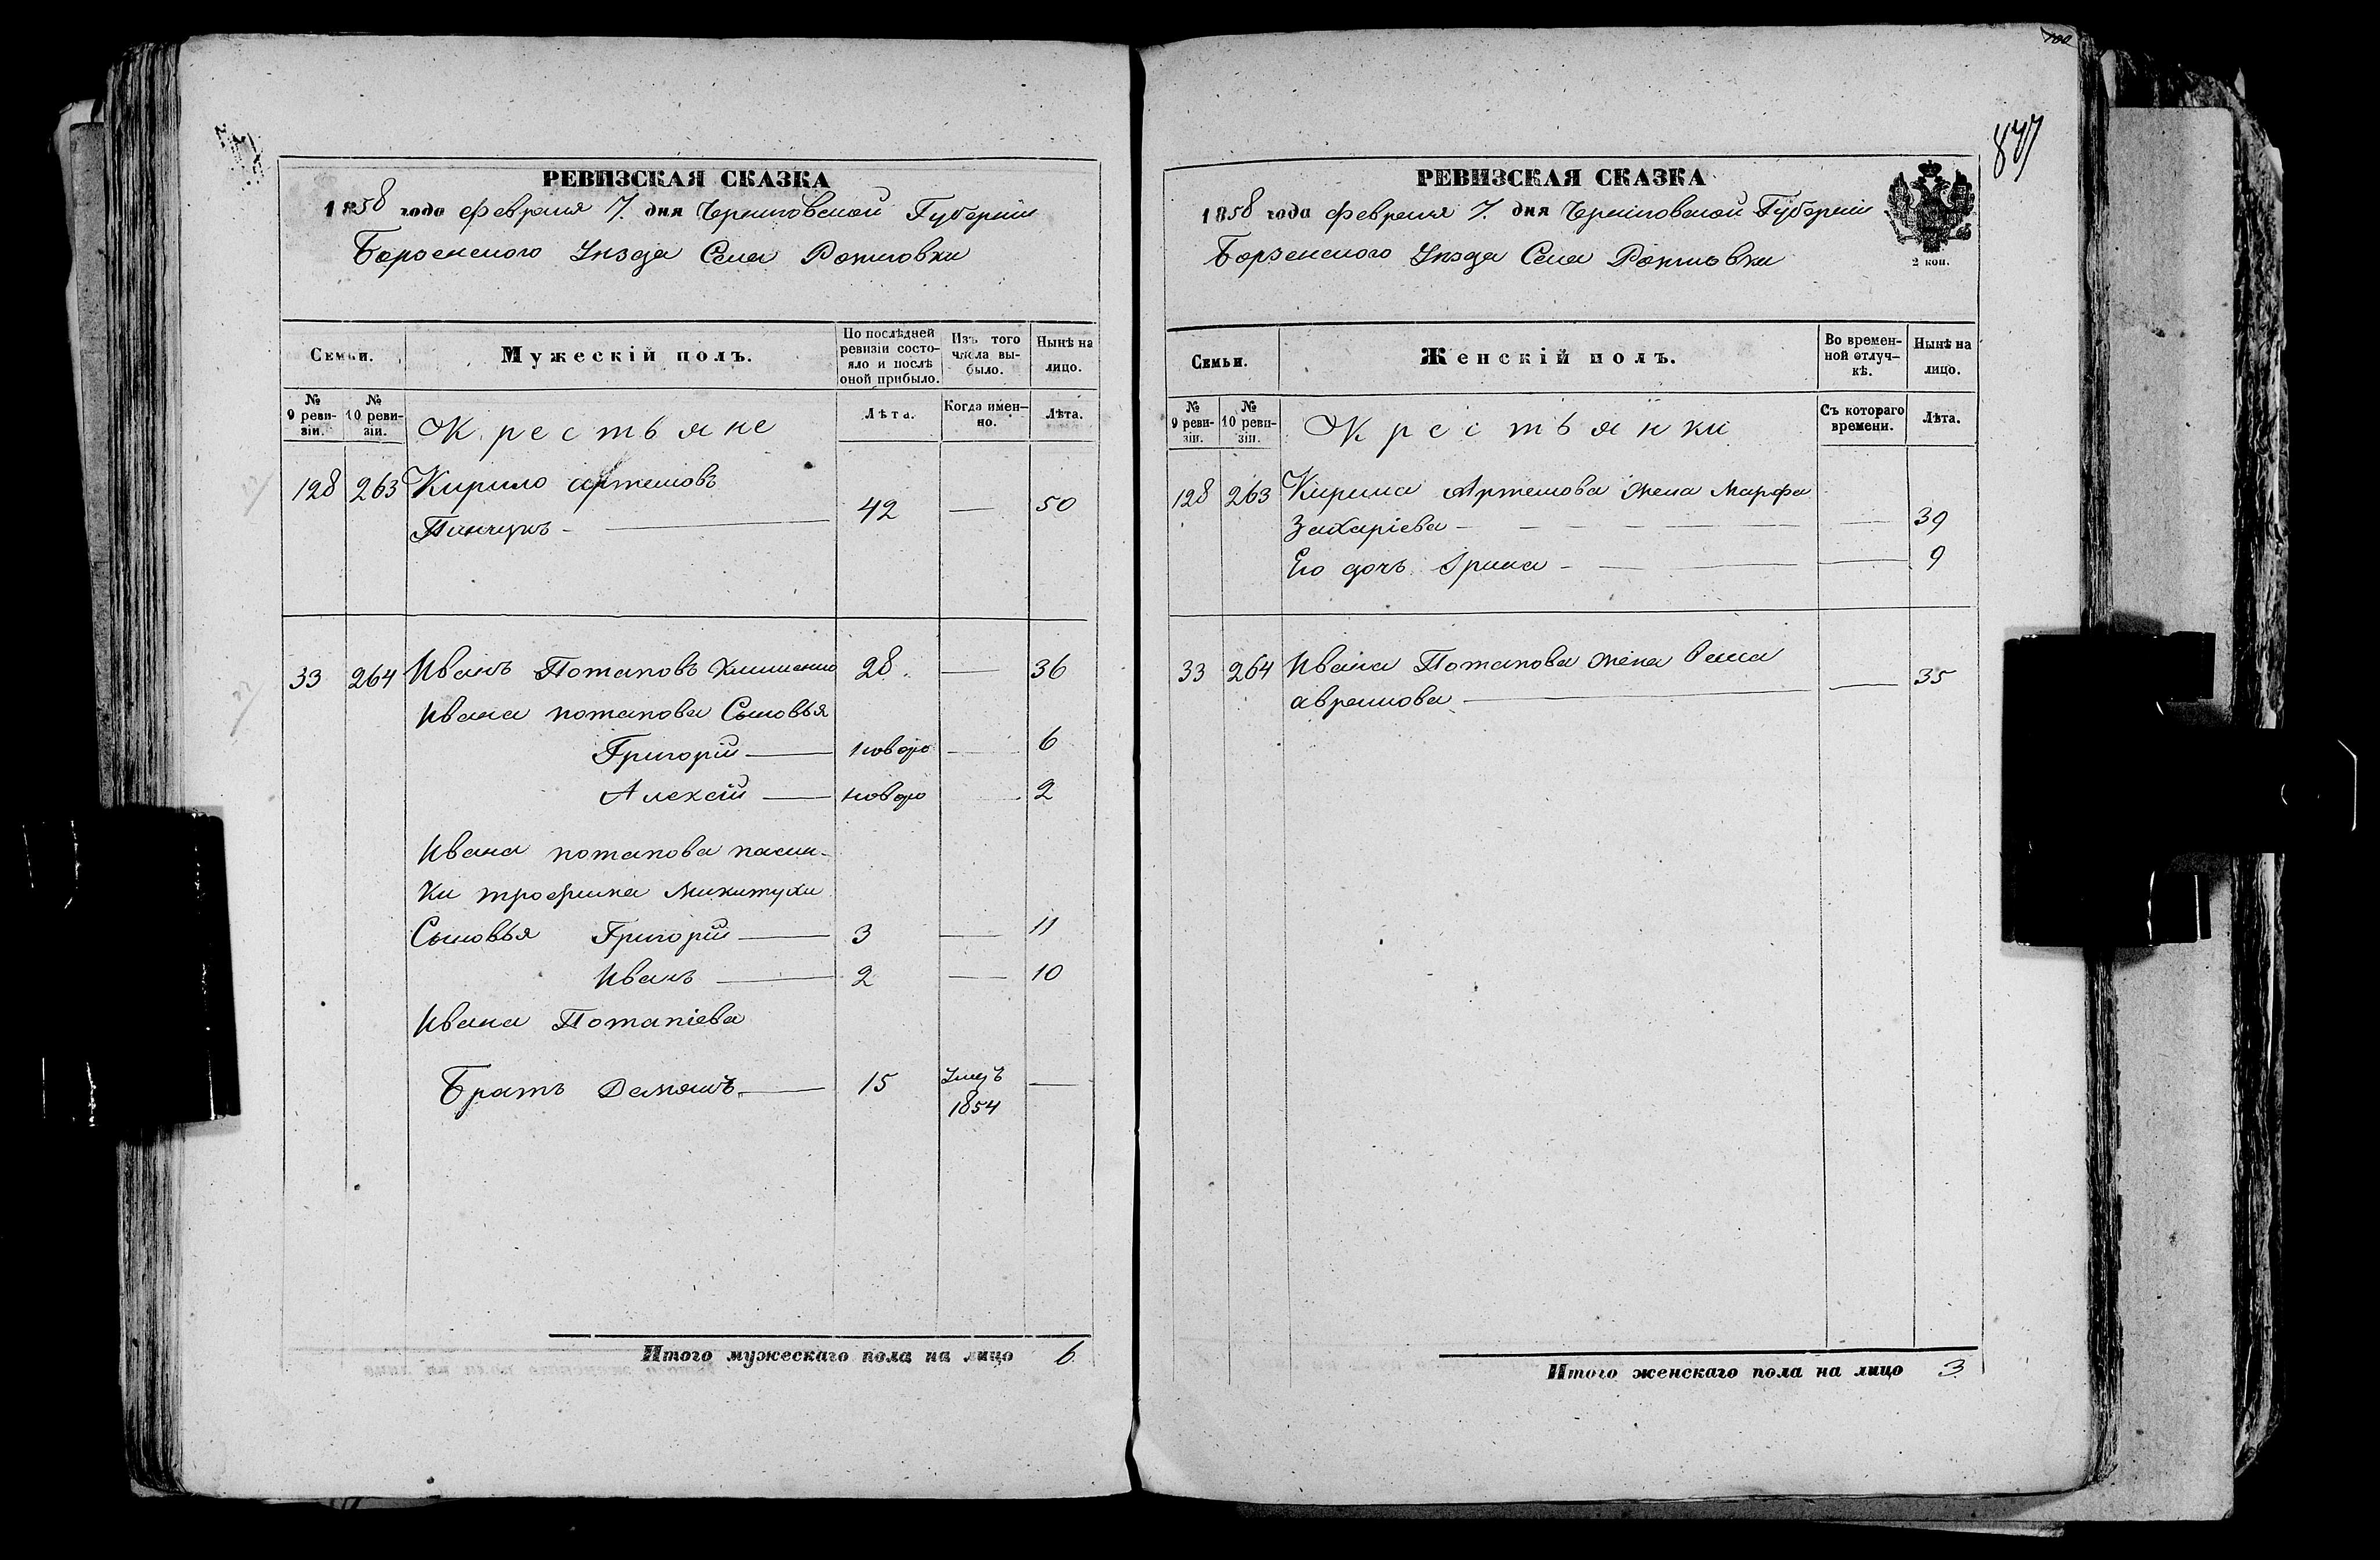 РЕВИЗСКАЯ СКАЗКА
1858 года февраля 7. дня Черниговской Губерніи
Борзенского Уѣзда Села
Семьи.
Мужескій полъ.
По послѣдней ревизіи состо-
яло и послѣ оной прибыло.
Изъ того числа вы-
было.
Нынѣ на лицо.
№ 9 реви-
зіи.
№ 10 реви-
зіи.
Крестьяне
Лѣта.
Когда имен-
но.
Лѣта.
128 263 Кирило Артемовъ
Панчукъ - 42 — 50
33 264 Иванъ Потаповъ 28. — 36
Ивана потапова Сыновья
Григорій — новоро — 6
Алексій — новоро — 2
Ивана потапова пасын-
ки трофима Микитухи
Сыновья Григорій — 3 — 11
Иванъ — 2 — 10
Ивана Потапіева
Братъ Демянъ — 15 умеръ 1854 —
Итого мужескаго пола на лицо 6
100
877
РЕВИЗСКАЯ СКАЗКА
1858 года февраля 7. дня Черниговской Губерніи
Борзенского Уѣзда Села
2 коп.
Семьи.
Женскій полъ.
Во времен-
ной отлуч-
кѣ.
Нынѣ на лицо.
№ 9 реви-
зіи.
№ 10 реви-
зіи.
Крестьянки
Съ котораго времени.
Лѣта.
128 263 Кирила Артемова жена Марфа
Захаріева — — 39
Его дочь Ірина — — 9
33 264 Ивана Потапова жена
аврамова — — 35
Итого женскаго пола на лицо 3